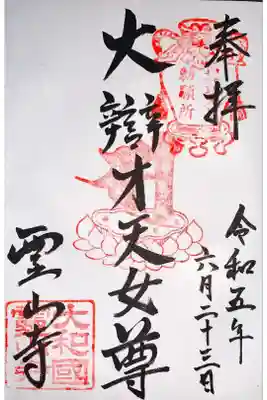 奉拝
勅願所
令和五年
六月二十三日
大辯才天女尊
霊山寺
大和國